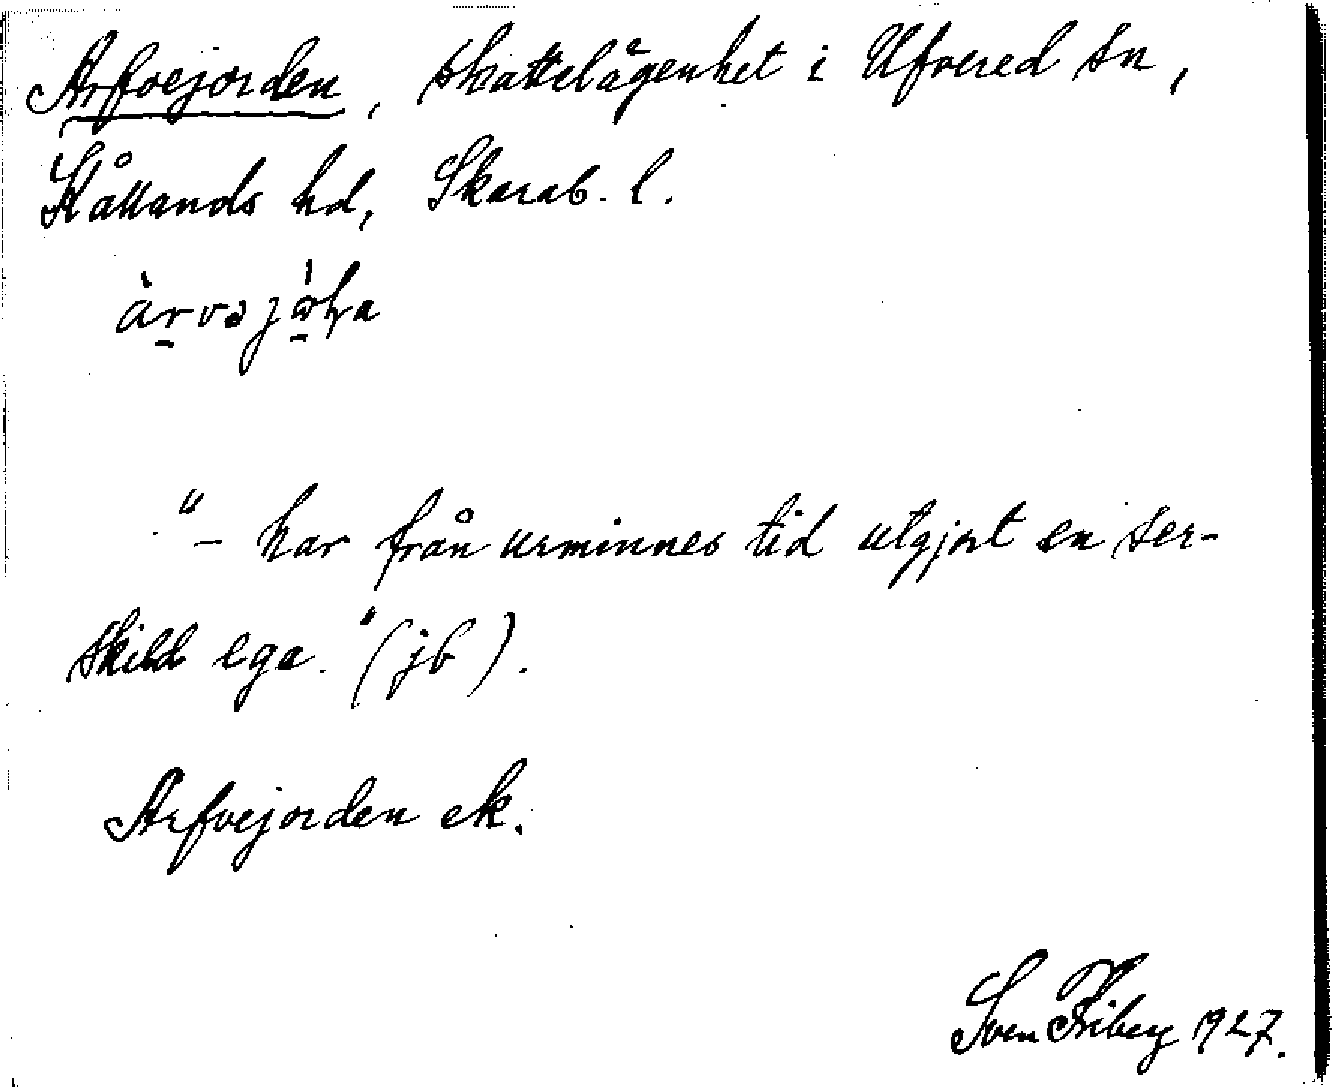 Arfvejorden, skattelägenhet i Ufvered sn,
Kållands hd, Skarab. l.
"- har från urminnes tid utgjort en ser-
skild ega." (jb).
Arfvejorden ek.
Sven Friberg 1927.